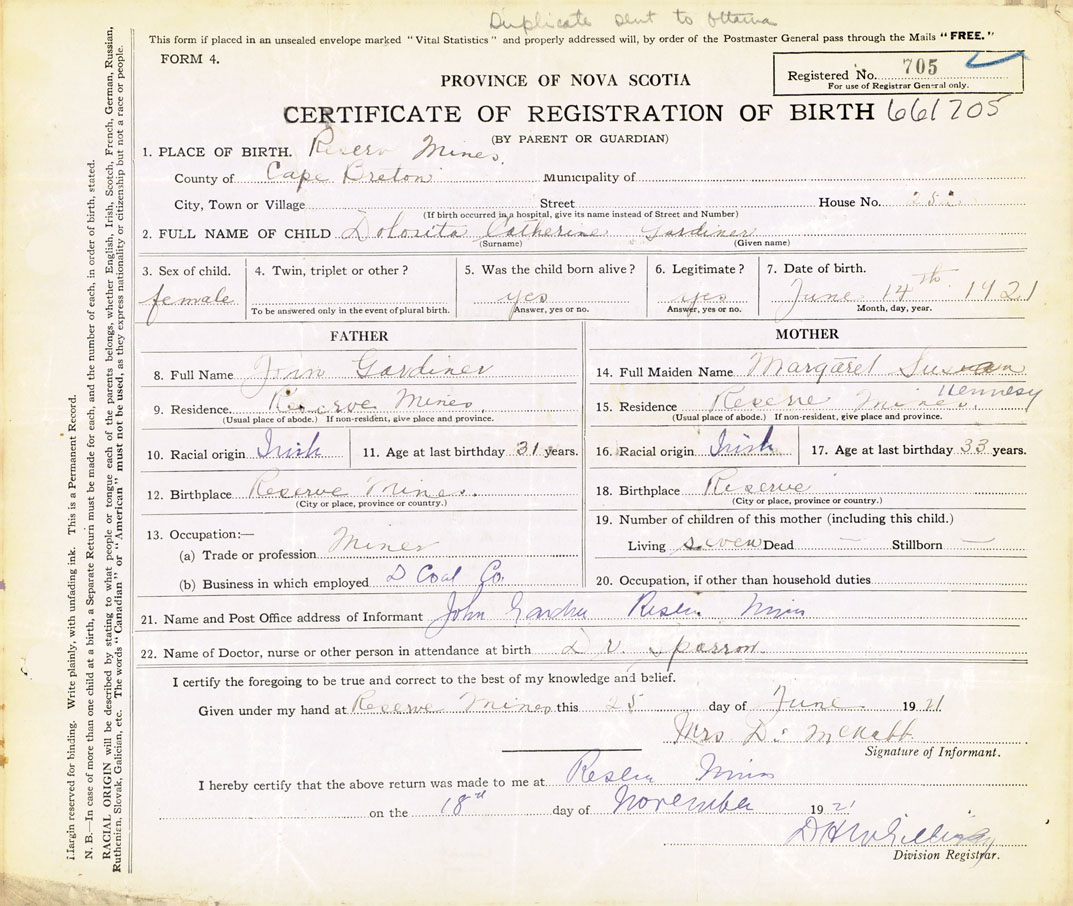 Duplicate sent to Ottawa
This form if placed in an unsealed envelope marked "Vital Statistics" and properly addressed will, by order of the Postmaster General pass through the Mails "FREE."
FORM 4.
Registered No. 705
For use of Registrar General only.
PROVINCE OF NOVA SCOTIA
CERTIFICATE OF REGISTRATION OF BIRTH 661705
(BY PARENT OR GUARDIAN)
1. PLACE OF BIRTH. Reserv Mines.
County of Cape Breton Municipality of
City, Town or Village Street House No.
(If birth occurred in a hospital, give its name instead of Street and Number)
2. FULL NAME OF CHILD Dolosita Catherine Gardiner
(Surname) (Given name)
3. Sex of child. 4. Twin, triplet or other? 5. Was the child born alive? 6. Legitimate? 7. Date of birth.
female yes yes June 14th 1921
To be answered only in the event of plural birth. Answer, yes or no. Answer, yes or no. Month, day, year.
FATHER
8. Full Name John Gardiner
9. Residence Reserve Mines.
(Usual place of abode.) If non-resident, give place and province.
10. Racial origin Irish 11. Age at last birthday 31 years.
12. Birthplace Reserve Mines.
(City or place, province or country.)
13. Occupation:—
(a) Trade or profession Miner
(b) Business in which employed D Coal Co.
MOTHER
14. Full Maiden Name Margaret Susan
Hennesy
15. Residence Reserve Mines.
(Usual place of abode.) If non-resident, give place and province.
16. Racial origin Irish 17. Age at last birthday 33 years.
18. Birthplace Reserve
(City or place, province or country.)
19. Number of children of this mother (including this child.)
Living seven Dead — Stillborn —
20. Occupation, if other than household duties
21. Name and Post Office address of Informant John Mines
22. Name of Doctor, nurse or other person in attendance at birth
I certify the foregoing to be true and correct to the best of my knowledge and belief.
Given under my hand at Reserve Mines this 25 day of June 1921
Mrs D. McNabb
Signature of Informant.
I hereby certify that the above return was made to me at Mines
on the 18th day of November 1921
Division Registrar.
Margin reserved for binding. Write plainly, with unfading ink. This is a Permanent Record.
N. B.—In case of more than one child at a birth, a Separate Return must be made for each, and the number of each, in order of birth, stated.
RACIAL ORIGIN will be described by stating to what people or tongue each of the parents belongs, whether English, Irish, Scotch, French, German, Russian,
Ruthenian, Slovak, Galician, etc. The words "Canadian" or "American" must not be used, as they express nationality or citizenship but not a race or people.